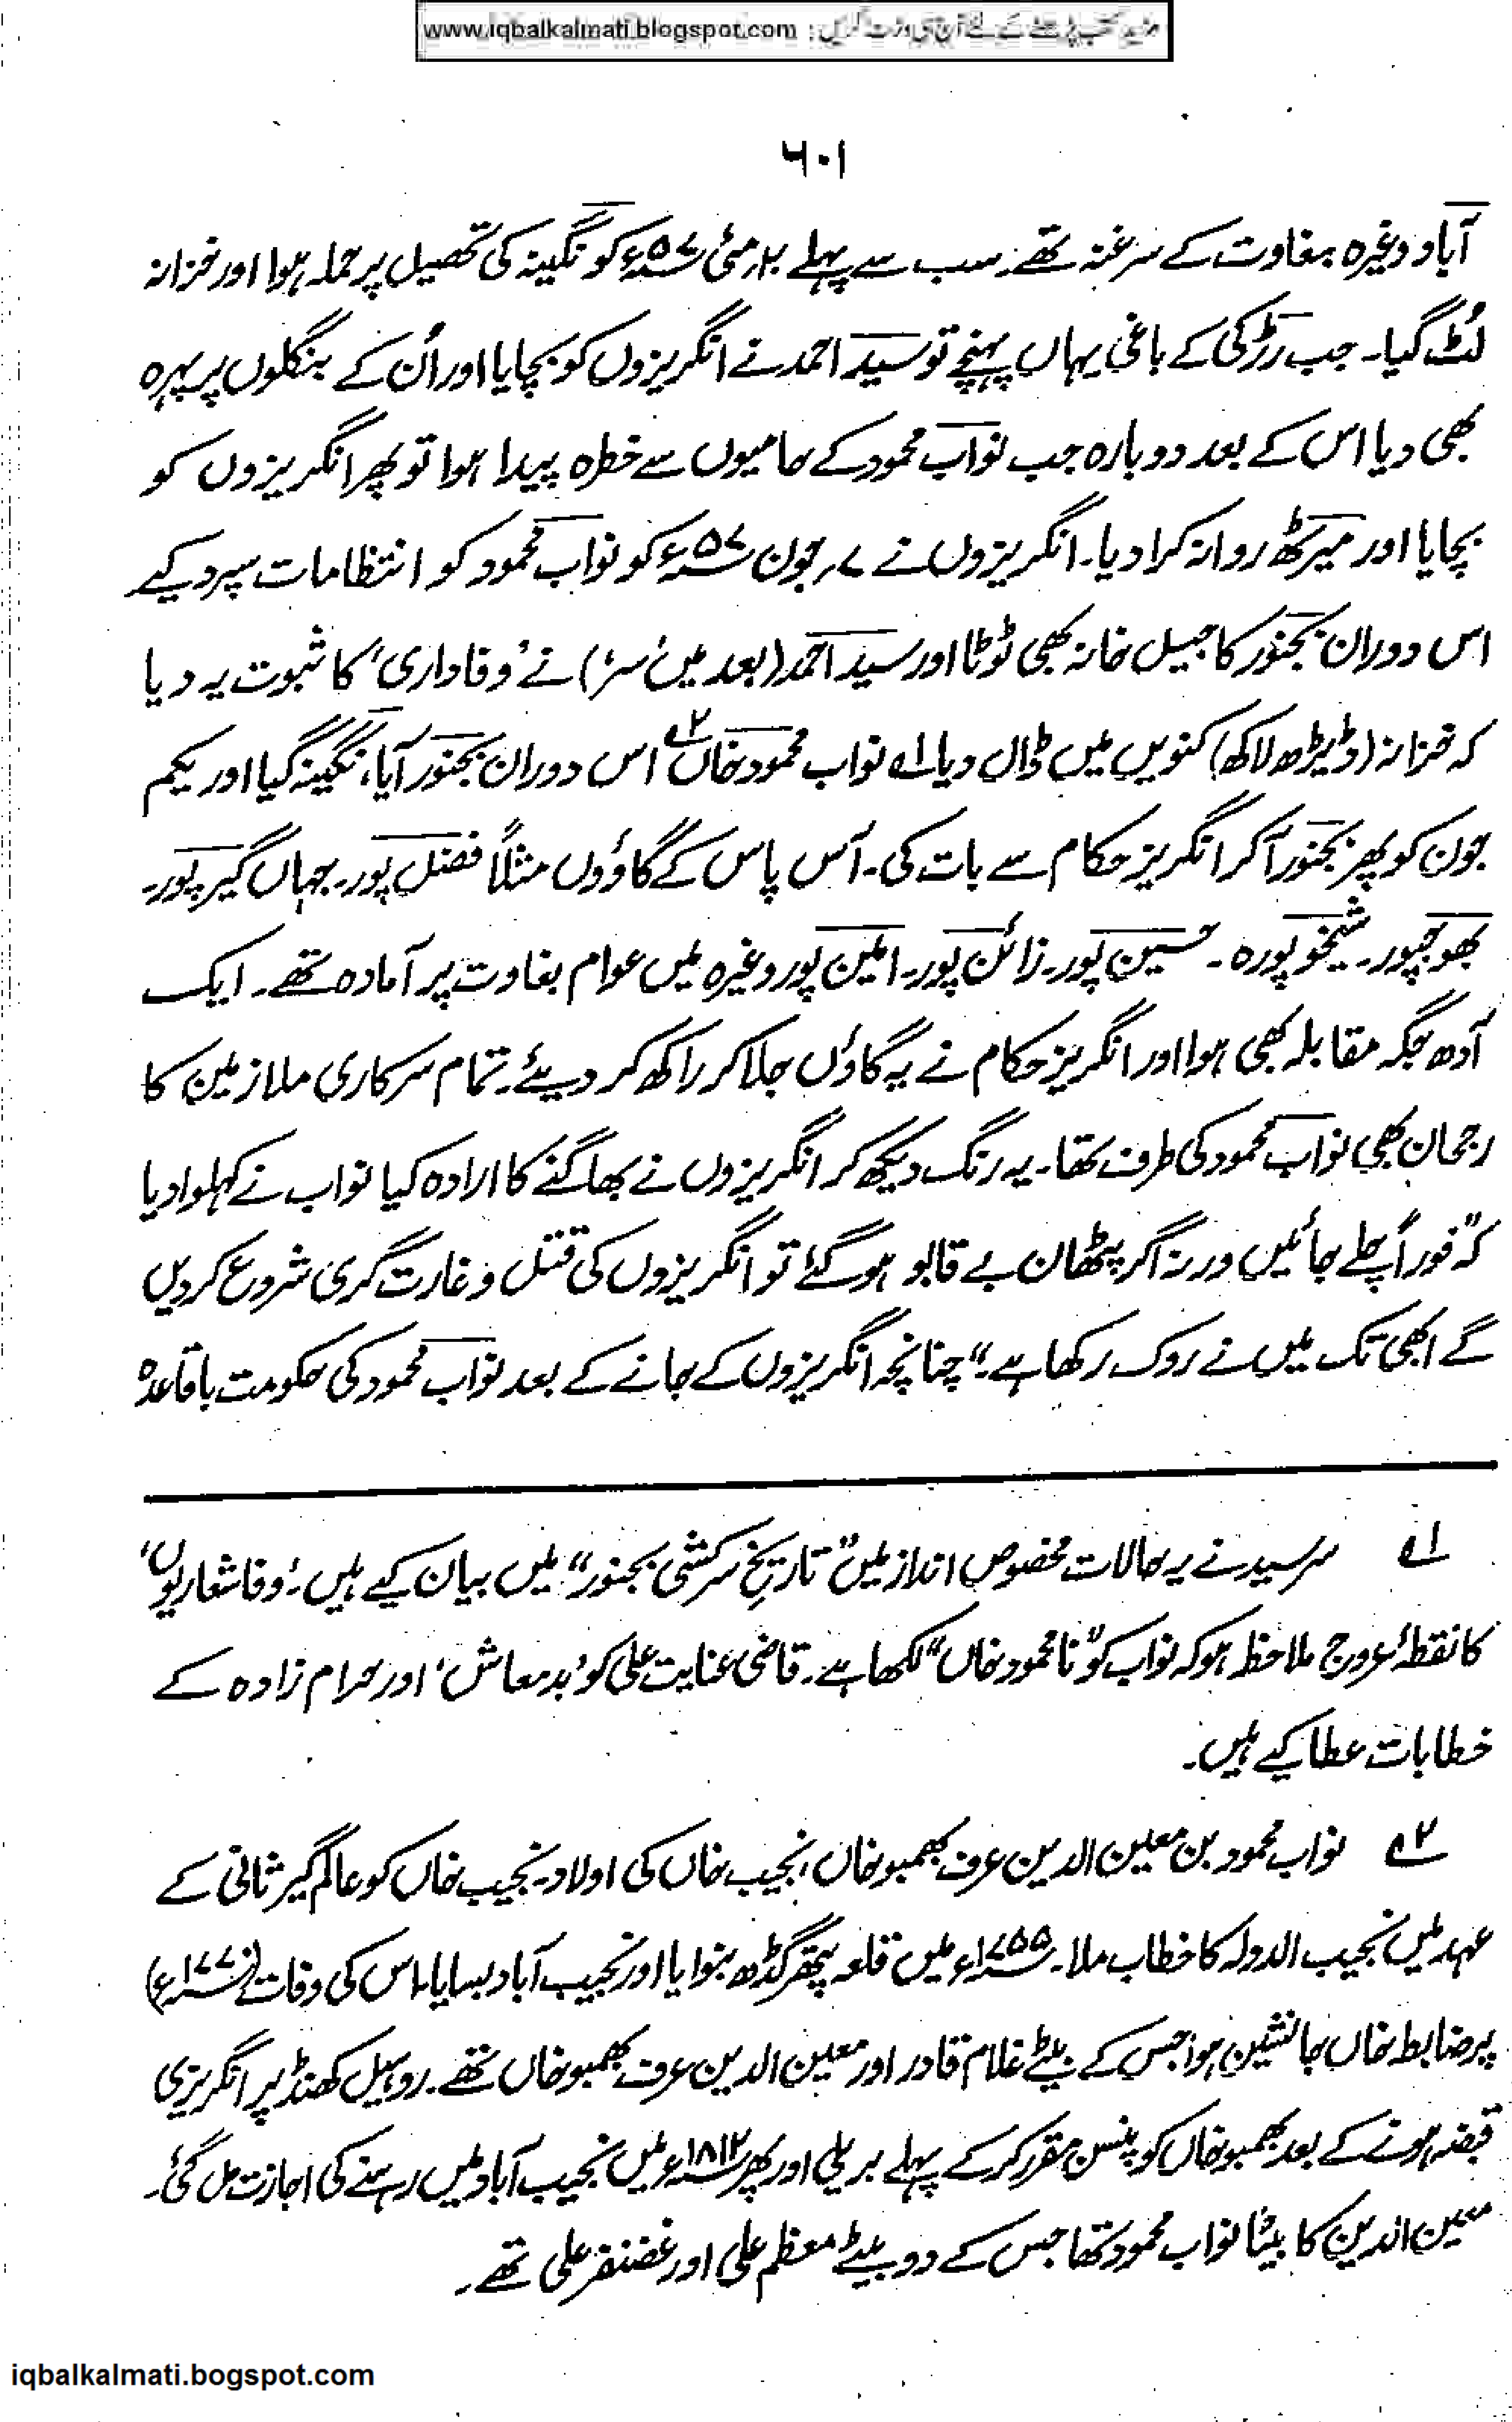 مزید کتب پڑھنے کے لئے آج ہی وزٹ کریں : www.iqbalkalmati.blogspot.com
۶۰۱
آباد وغیرہ بغاوت کے سرغنہ تھے۔ سب سے پہلے ۲۰؍مئی ۵۷ء کو نگینہ کی تحصیل پر حملہ ہوا اور خزانہ
لُٹ گیا۔ جب رڑکی کے باغی یہاں پہنچے تو سید احمد نے انگریزوں کو بچایا اور اُن کے بنگلوں پر پہرہ
بھی دیا اس کے بعد دوبارہ جب نواب محمود کے حامیوں سے خطرہ پیدا ہوا تو پھر انگریزوں کو
بچایا اور میرٹھ روانہ کرا دیا۔ انگریزوں نے ۷؍جون ۵۷ء کو نواب محمود کو انتظامات سپرد کیے
اس دوران بجنور کا جیل خانہ بھی ٹوٹا اور سید احمد (بعد میں 'سر') نے 'وفاداری' کا ثبوت یہ دیا
کہ خزانہ (ڈیڑھ لاکھ) کنویں میں ڈال دیا ۱ نواب محمود خاں ۲ اس دوران بجنور آیا، نگینہ گیا اور یکم
جون کو پھر بجنور آکر انگریز حکام سے بات کی۔ آس پاس کے گاؤوں مثلاً فضل پور۔ جہاں گیر پور۔
بھوجپور۔ شیخوپورہ۔ حسین پور۔ زائن پور۔ امین پور وغیرہ میں عوام بغاوت پر آمادہ تھے۔ ایک
آدھ جگہ مقابلہ بھی ہوا اور انگریز حکام نے یہ گاؤں جلا کر راکھ کر دیئے۔ تمام سرکاری ملازمین کا
رجحان بھی نواب محمود کی طرف تھا۔ یہ رنگ دیکھ کر انگریزوں نے بھاگنے کا ارادہ کیا نواب نے کہلوا دیا
کہ "فوراً چلے جائیں ورنہ اگر پٹھان بے قابو ہو گئے تو انگریزوں کی قتل و غارت گری شروع کر دیں
گے ابھی تک میں نے روک رکھا ہے۔" چنانچہ انگریزوں کے جانے کے بعد نواب محمود کی حکومت باقاعدہ
۱ سرسید نے یہ حالات مخصوص انداز میں "تاریخ سرکشی بجنور" میں بیان کیے ہیں۔ 'وفا شعاریوں'
کا نقطۂ عروج ملاحظہ ہو کہ نواب کو "نا محمود خاں" لکھا ہے۔ قاضی عنایت علی کو 'بدمعاش' اور حرام زادہ کے
خطابات عطا کیے ہیں۔
۲ نواب محمود بن معین الدین عرف بھمبو خاں، نجیب خاں کی اولاد۔ نجیب خاں کو عالم گیر ثانی کے
عہد میں نجیب الدولہ کا خطاب ملا۔ ۱۷۵۵ء میں قلعہ پتھر گڈھ بنوایا اور نجیب آباد بسایا۔ اس کی وفات (۱۷۷۰ء)
پر ضابطہ خاں جانشین ہوا جس کے بیٹے غلام قادر اور معین الدین عرف بھمبو خاں تھے۔ روہیل کھنڈ پر انگریزی
قبضہ ہونے کے بعد بھمبو خاں کو پنسن مقرر کرکے پہلے بریلی اور پھر ۱۸۱۲ء میں نجیب آباد میں رہنے کی اجازت مل گئی۔
معین الدین کا بیٹا نواب محمود تھا جس کے دو بیٹے معظم علی اور غضنفر علی تھے۔
iqbalkalmati.bogspot.com